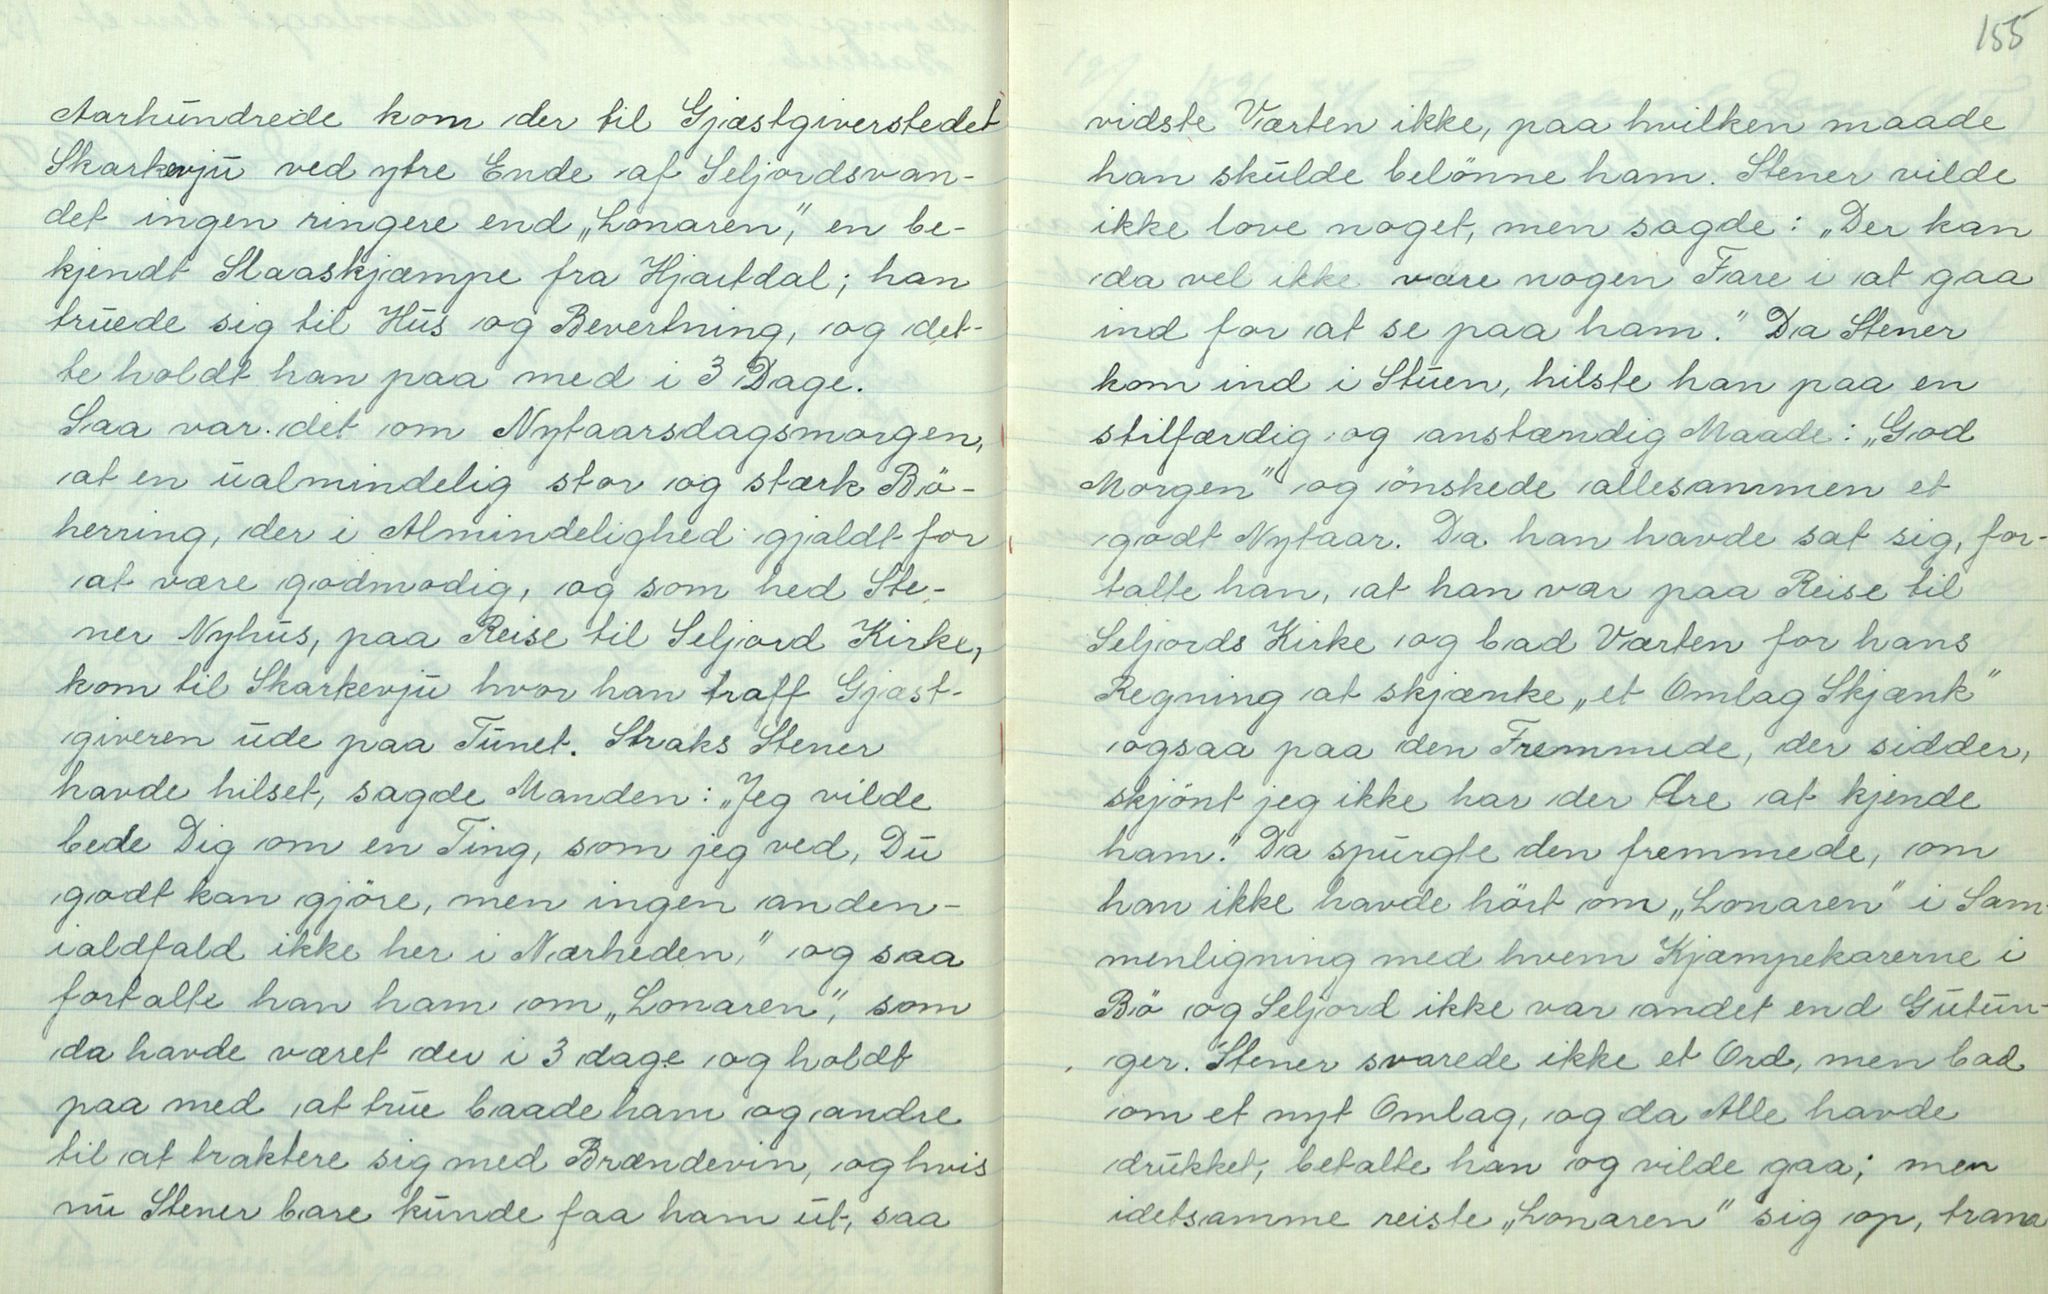 Aarhundrede kom der til Gjæstgiverstedet
Skarkevju ved ytre Ende af Seljordsvan-
det ingen ringere end „Lonaren", en be-
kjendt Slaaskjæmpe fra Hjartdal; han
truede sig til Hus og Bevertning, og det-
te holdt han paa med i 3 Dage.
Saa var det om Nytaarsdagsmorgen,
at en ualmindelig stor og stærk Bö-
herring, der i Almindelighed gjaldt for
at være godmodig, og som hed Ste-
ner Nyhus, paa Reise til Seljord Kirke,
kom til Skarkevju hvor han traff Gjæst-
giveren ude paa Tunet. Straks Stener
havde hilset, sagde Manden: „Jeg vilde
bede Dig om en Ting, som jeg ved, Du
godt kan gjöre, men ingen anden-
ialdfald ikke her i Nærheden," og saa
fortalte han ham om „Lonaren", som
da havde været der i 3 dage og holdt
paa med at true baade ham og andre
til at traktere sig med Brændevin, og hvis
nu Stener bare kunde faa ham ut, saa
155
vidste Værten ikke, paa hvilken maade
han skulde belönne ham. Stener vilde
ikke love noget, men sagde: „Der kan
da vel ikke være nogen Fare i at gaa
ind for at se paa ham." Da Stener
kom ind i Stuen, hilste han paa en
stilfærdig og anstændig Maade: „God
Morgen" og önskede allesammen et
godt Nytaar. Da han havde sat sig, for-
talte han, at han var paa Reise til
Seljords Kirke og bad Værten for hans
Regning at skjænke „et Omlag Skjænk"
ogsaa paa den Fremmede, der sidder,
skjönt jeg ikke har der Ære at kjende
ham." Da spurgte den fremmede, om
han ikke havde hört om „Lonaren" i Sam-
menligning med hvem Kjæmpekarerne i
Bö og Seljord ikke var andet end Gutun-
ger. Stener svarede ikke et Ord, men bad
om et nyt Omlag, og da Alle havde
drukket, betalte han og vilde gaa; men
idetsamme reiste „Lonaren" sig op, trana